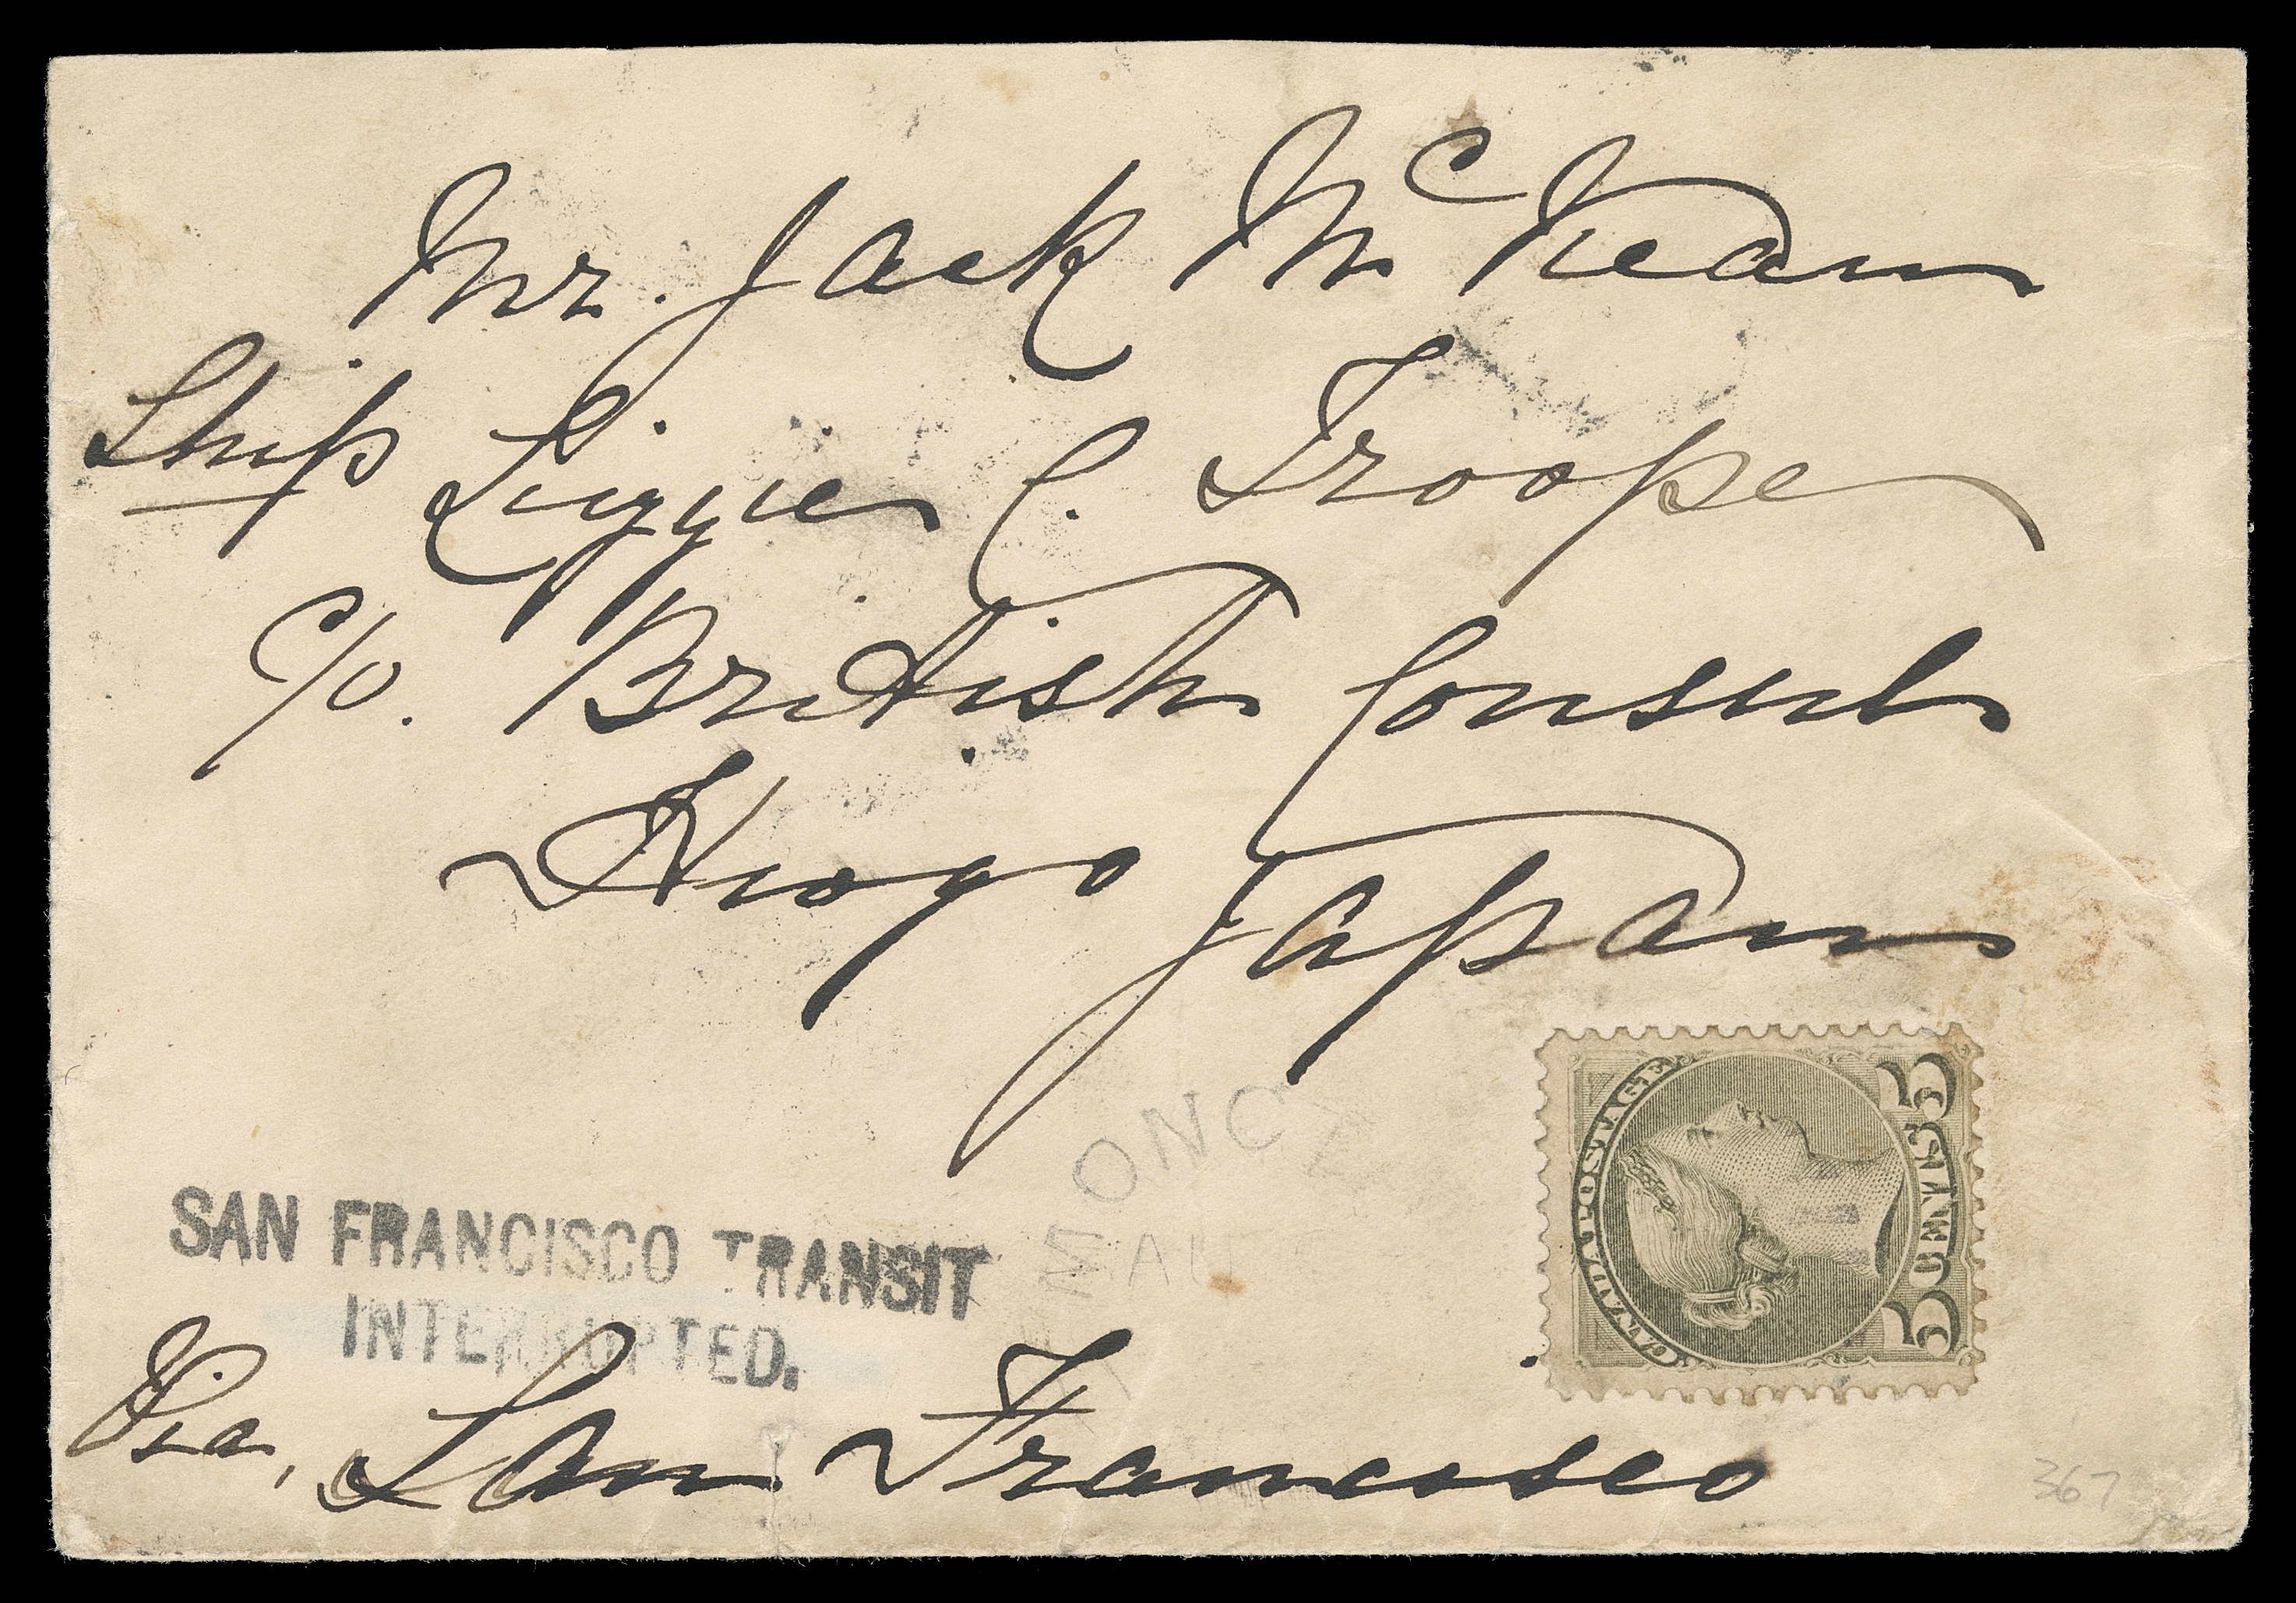 Mr. Jack McKean
Ship Lizzie C. Troope
C/o. British Consul
Hiogo Japan
CANADA POSTAGE
5 CENTS 5
SAN FRANCISCO TRANSIT
INTERRUPTED.
Via, San Francisco
367